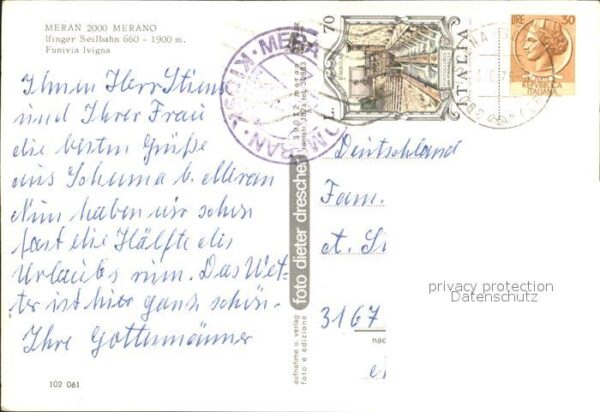 MERAN 2000 MERANO
Ifinger Seilbahn 660 - 1900 m.
Funivia Ivigna
Ihnen Herr
und Ihrer Frau
die besten Grüße
aus Schenna b. Meran
Nun haben wir schon
fast die Hälfte des
Urlaubs rum. Das Wet-
ter ist hier ganz schön.
Ihre
102 061
KIOSK · MERAN
MERAN
foto dieter drescher
39012 meran
aufnahme u. verlag
foto e edizione
L. 70
ITALIA
LIRE 30
REPVBBLICA
ITALIANA
Deutschland
Fam.
3167
privacy protection
Datenschutz